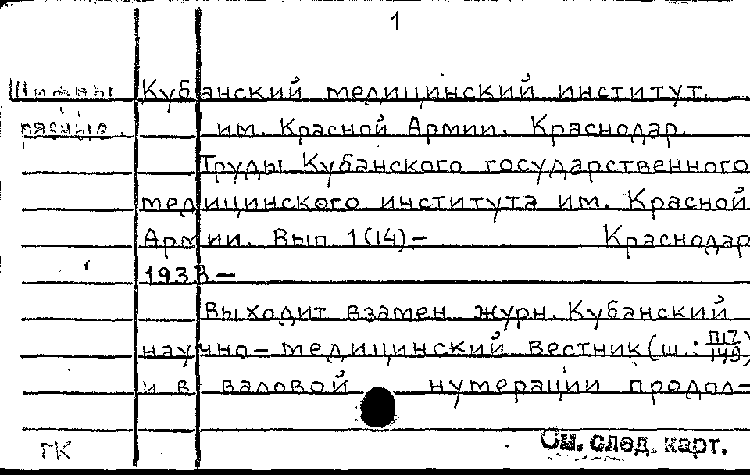 1
Шифры Кубанский медицинский институт
разные. им. Красной Армии. Краснодар.
Труды Кубанского государственного
медицинского института им. Красной
Армии. Вып 1(14)– Краснодар
1933–
Выходит взамен журн. Кубанский
научно-медицинский вестник (ш.: П17/149)
и в валовой нумерации продол-
ГК См. след. карт.